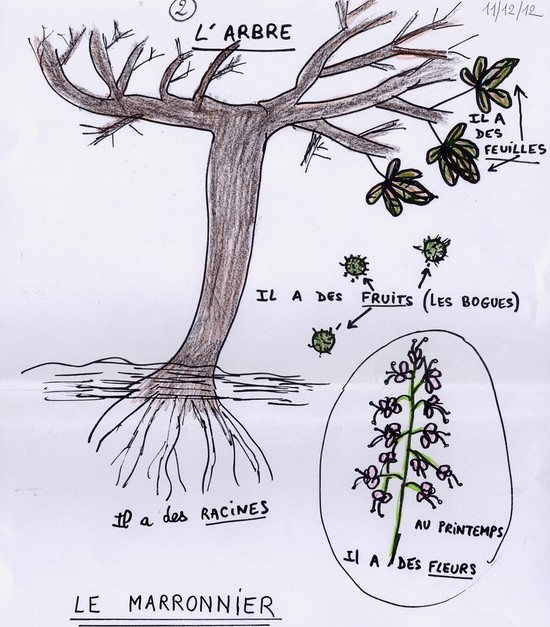 2
11/12/12
L'ARBRE
IL A
DES
FEUILLES
IL A DES FRUITS (LES BOGUES)
Il a des RACINES
AU PRINTEMPS
Il A DES FLEURS
LE MARRONNIER